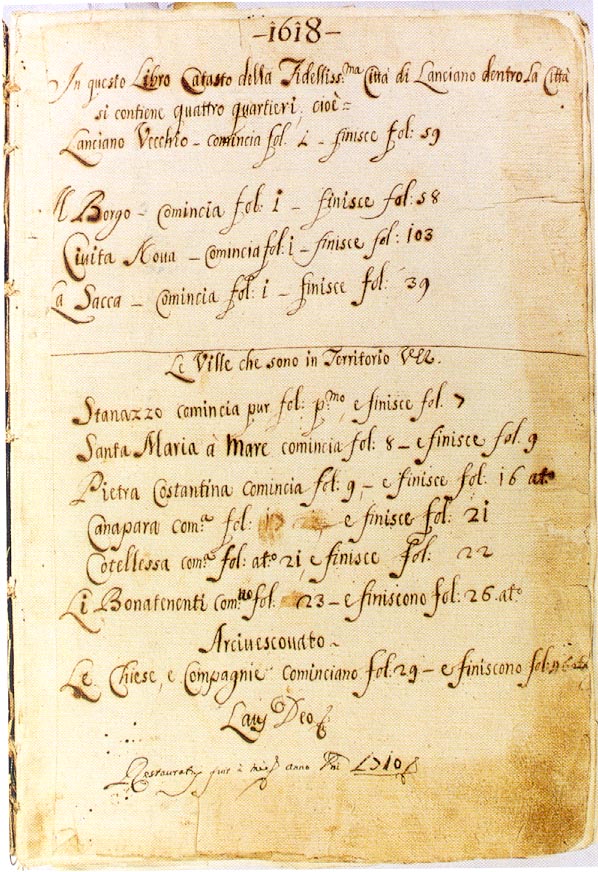 -1618-
In questo Libro Catasto della Fidelliss:ma Città di Lanciano dentro la Città
si contiene quattro quartieri, cioè=
Lanciano Vecchio - comincia fol. i - finisce fol: 59
Il Borgo - Comincia fol: i - finisce fol: 58
Civita Nova - Comincia fol: i - finisce fol: 103
La Sacca - Comincia fol: i - finisce fol: 39
Le Ville che sono in Territorio
Stanazzo comincia pur fol: p:mo, e finisce fol. 7
Santa Maria à Mare comincia fol: 8 - e finisce fol. 9
Pietra Costantina comincia fol: 9, - e finisce fol: 16 at:o
Canapara com:a fol: e finisce fol: 21
Cotellessa com:a fol: at:o 21, e finisce fol: 22
Li Bonatenenti com:no fol: 23 - e finiscono fol: 26. at:o
Arcivescovato -
Le Chiese, e Compagnie cominciano fol: 29 - e finiscono fol:
Laus Deo
anno 1710